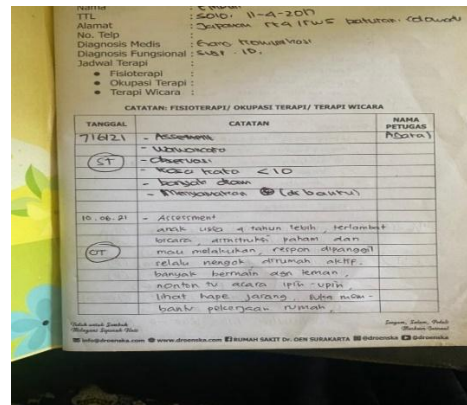 Nama :
TTL : Solo, 11-4-2017
Alamat : RT 4 RW 5
No. Telp :
Diagnosis Medis :
Diagnosis Fungsional : Susp. ID.
Jadwal Terapi :
• Fisioterapi :
• Okupasi Terapi :
• Terapi Wicara :
CATATAN: FISIOTERAPI/ OKUPASI TERAPI/ TERAPI WICARA
TANGGAL CATATAN NAMA PETUGAS
7/6/21 - Assesment
- Wawancara
ST - Observasi
- Kosa kata < 10
- banyak diam
- Menyamakan (dibantu)
10.06.21 - Assessment
anak usia 4 tahun lebih, terlambat
bicara, diinstruksi paham dan
OT mau melakukan, respon dipanggil
selalu nengok, dirumah aktif,
banyak bermain dgn teman,
nonton tv acara ipin-upin,
lihat hape jarang, suka mem-
bantu pekerjaan rumah,
info@droenska.com www.droenska.com RUMAH SAKIT Dr. OEN SURAKARTA @droenska @droenska